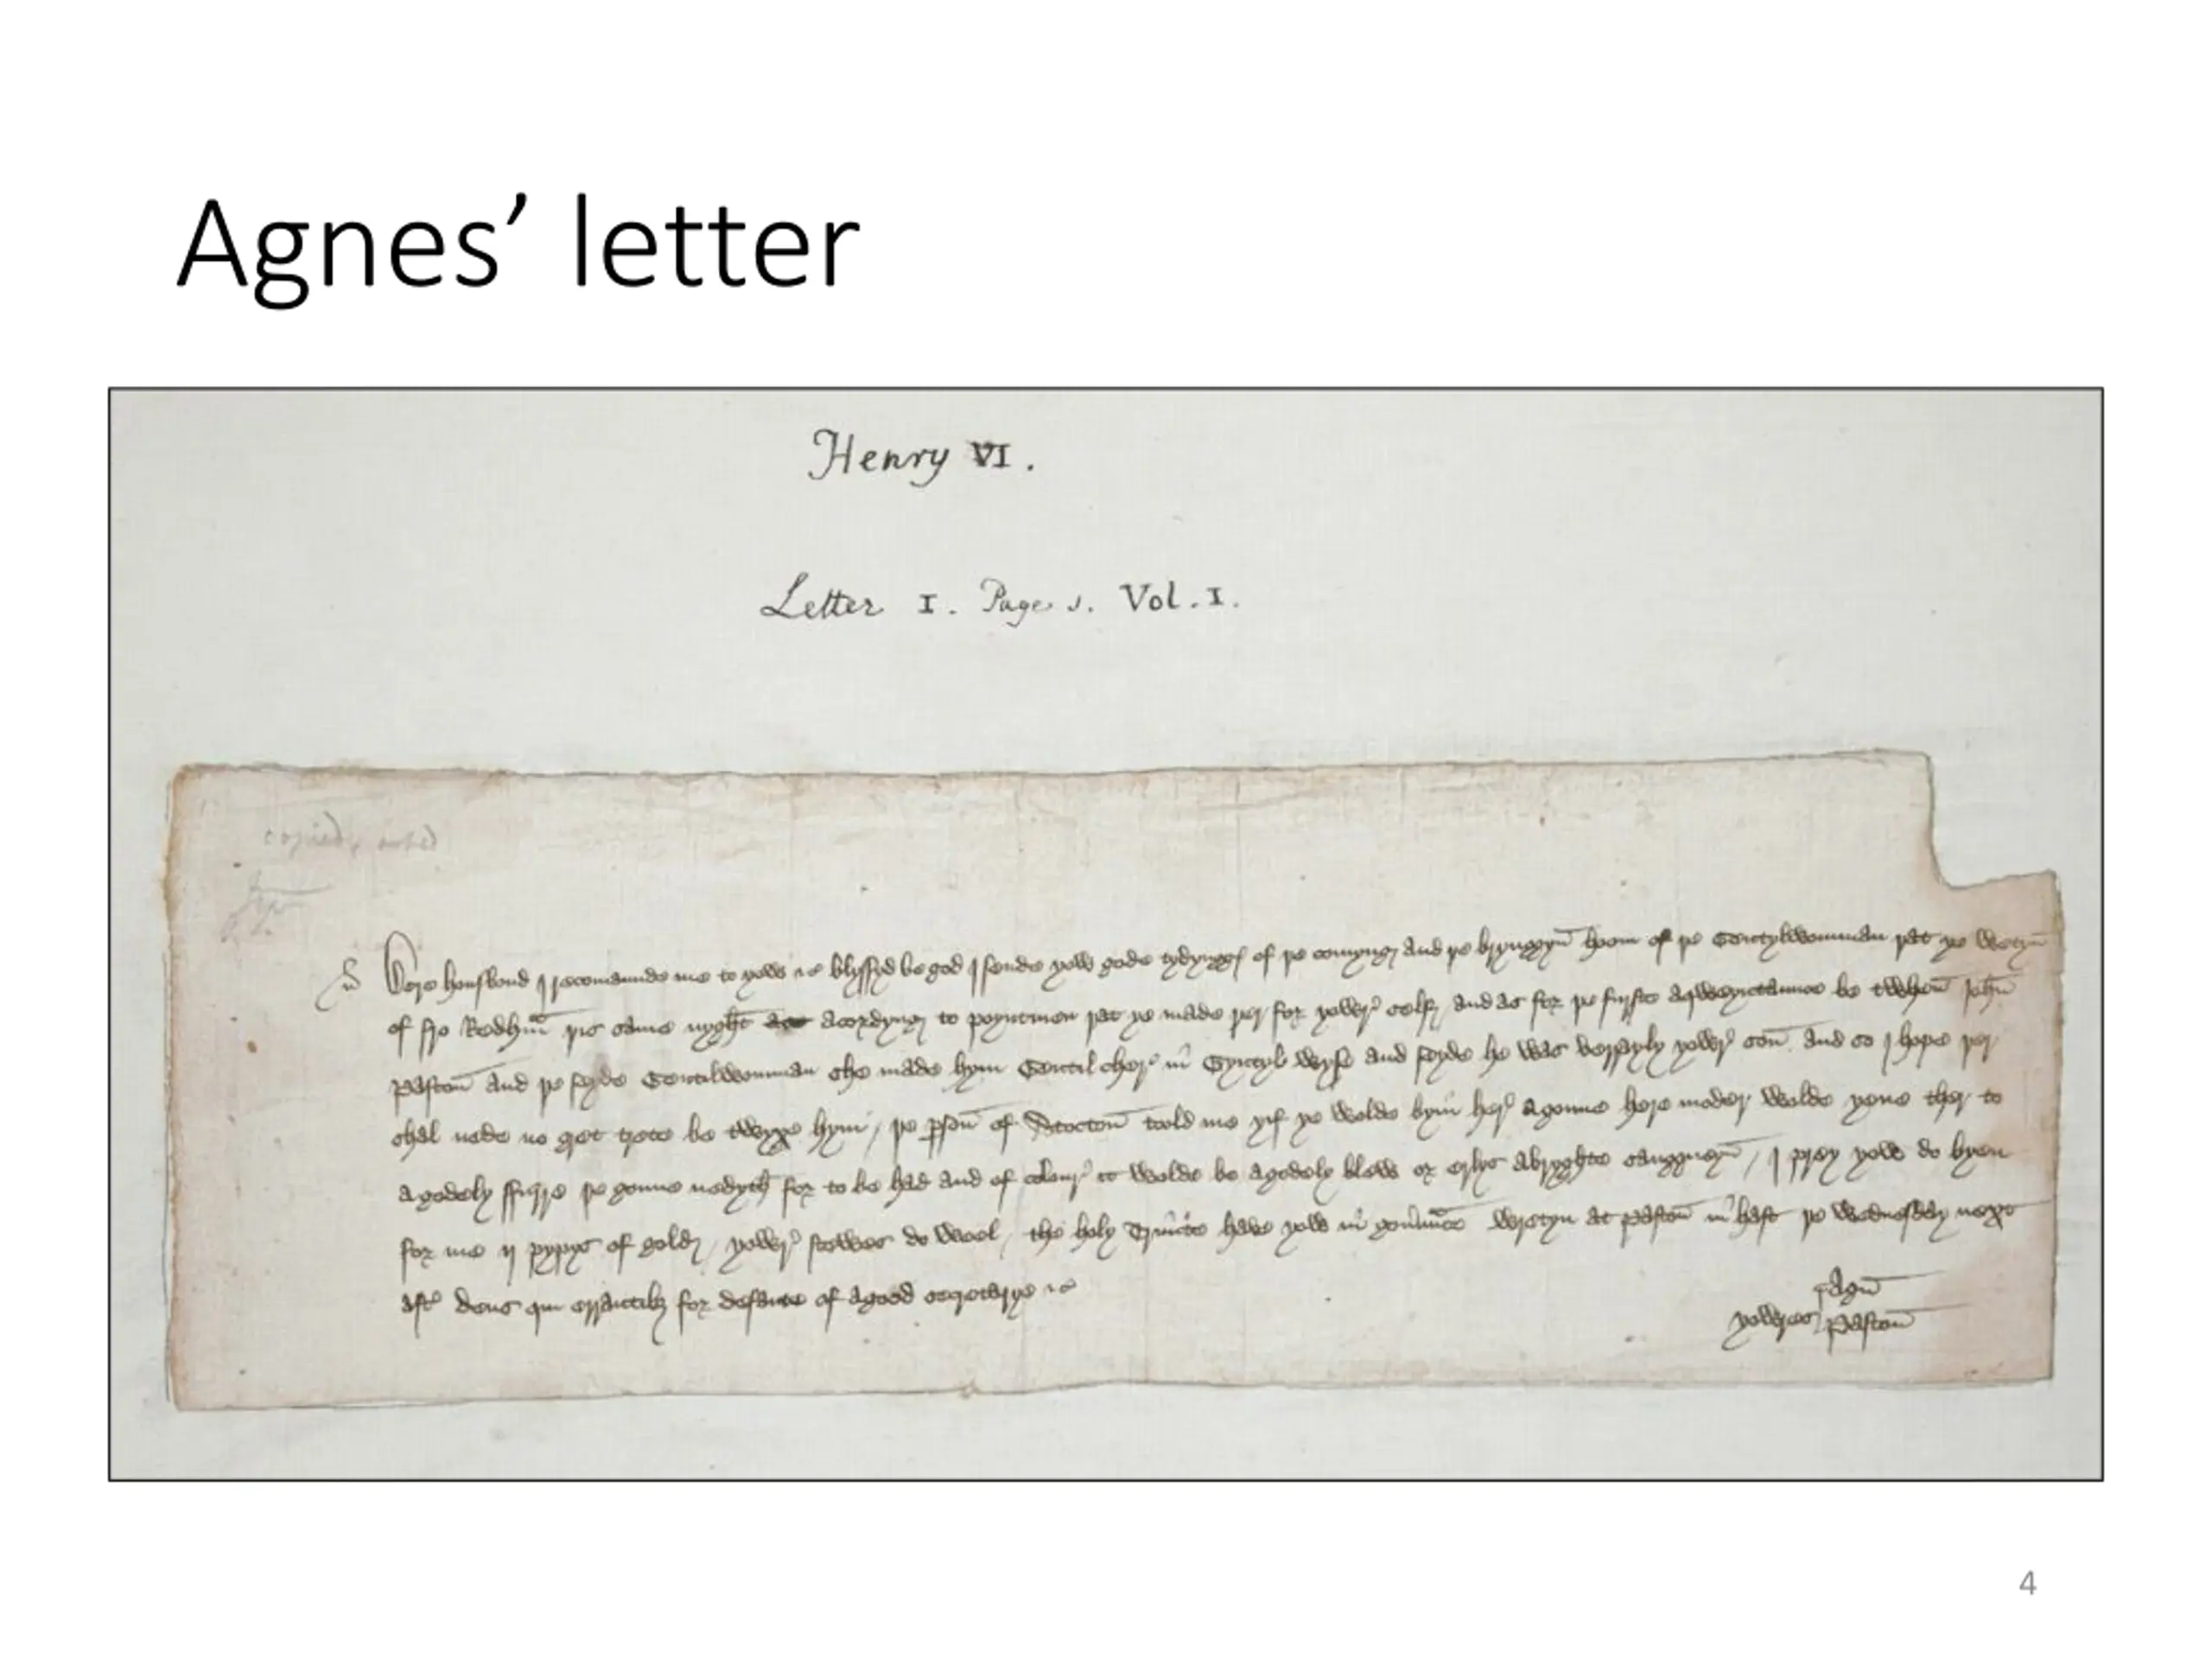 Agnes’ letter
Henry VI.
Letter I. Page 1. Vol. I.
copied, noted
Dere housbond I recomaunde me to yow &c blyssyd be god I sende yow gode tydynggs of þe comyng and þe brynggyn hoom of þe Gentylwomman þat ye wetyn
of fro Redhm þis same nyght acordyng to poyntmen þat ye made þer for yowr self and as for þe furste aqweyntaunce be twhen John
Paston and þe seyde Gentilwomman she made hym Gentil cher in Gyntyl wyse and seyde he was verrayly yowr son and so I hope þer
shal nede no gret trete be twyxe hym / þe pson of Stocton toold me yif ye wolde byin her a goune here moder wolde yeue ther to
a godely ffurre þe goune nedyth for to be had and of colour it wolde be a godely blew or erlys a bryghte sanggueyn / I prey yow do byen
for me ij pypys of gold / yowr stewes do weel / the holy Trinite have yow in gouernaunce wretyn at Paston in hast þe wednesday next
aft deus qui errantibz for defaute of a good secretarye &c
Agn
yowres Paston
4